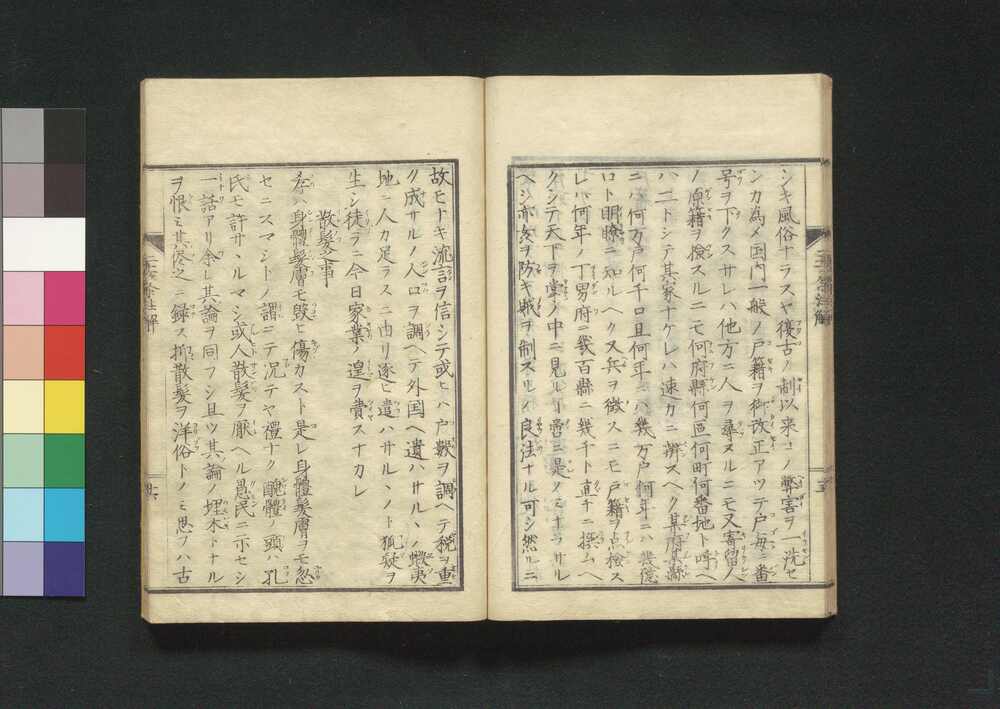 シキ風俗ナラスヤ復古ノ制以来コノ弊害ヲ一洗セ
ンカ為メ国内一般ノ戸籍ヲ御改正アツテ戸毎ニ番
号ヲ下タスサレハ他方ニ人ヲ尋ヌルニモ又寄留人
ノ原籍ヲ檢スルニモ何府縣何區何町何番地ト呼ヘ
ハ二トシテ其家ナケレハ速カニ辨スヘク某府某縣
ニハ何万戸何千口且何年ニハ幾万戸何年ニハ幾億
口ト明瞭ニ知ルヘク又兵ヲ徴スニモ戸籍ヲ点檢ス
レハ何年ノ丁男府ニ幾百縣ニ幾千ト直チニ撰ムヘ
クシテ天下ヲ堂ノ中ニ見ル可シ啻ニ是ノミナラサル
ヘシ亦姦ヲ防キ賊ヲ制スルノ良法ナル可シ然ルニ
故モナキ流言ヲ信シテ或ヒハ戸數ヲ調ヘテ税ヲ重
ク成サルノ人口ヲ調ヘテ外国ヘ遣ハサルヽノ蝦夷
地ニ人カ足ラスニ由リ逐ヒ遣ハサルヽノト狐疑ヲ
生シ徒ラニ今日家業ノ遑ヲ費スナカレ
散髪之事
孝ハ身體髮膚モ毀ヒ傷カスト是レ身體髮膚ヲモ忽
セニスマシトノ謂ニテ况テヤ禮ナク醜體ノ頭ハ孔
氏モ許サヽルマシ或人散髮ヲ厭ヘル愚民ニ示セシ
一話アリ余レ其論ヲ同フシ且ツ其論ノ埋木トナル
ヲ恨ミ其侭之ニ録ス抑散髮ヲ洋俗トノミ思フハ古